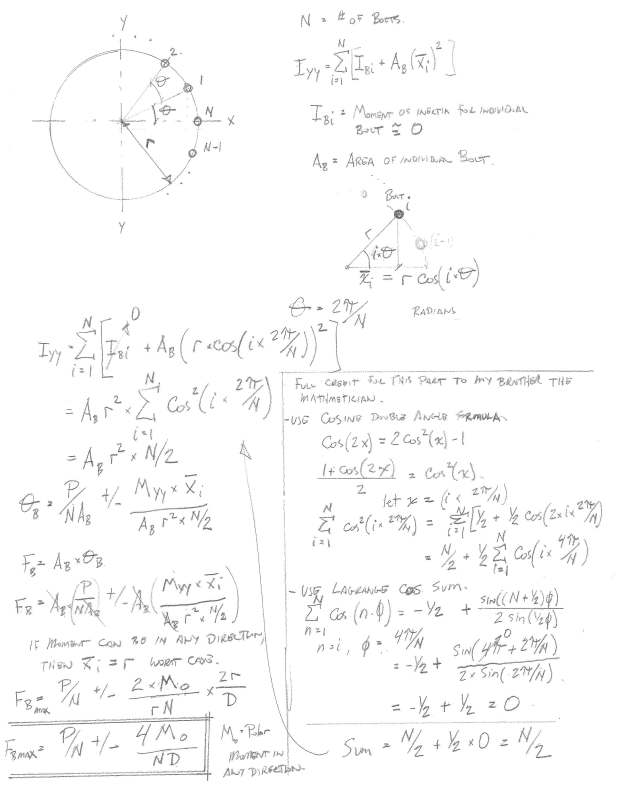 Y
2
1
N
N-1
X
Y
r
θ
θ
N = # OF BOLTS.
I_YY = Σ_{i=1}^{N} [I_{Bi} + A_B (x̄_i)²]
I_{Bi} = MOMENT OF INERTIA FOR INDIVIDUAL
BOLT ≅ 0
A_B = AREA OF INDIVIDUAL BOLT.
BOLT.
i
(i-1)
r
i×θ
x̄_i = r cos(i×θ)
θ = 2π/N RADIANS
I_YY = Σ_{i=1}^{N} [I_{Bi} 0 + A_B (r × cos(i × 2π/N))²]
= A_B r² × Σ_{i=1}^{N} Cos²(i × 2π/N)
= A_B r² × N/2
σ_B = P/NA_B +/- M_YY × x̄_i / A_B r² × N/2
F_B = A_B × σ_B
F_B = A_B (P/NA_B) +/- A_B (M_YY × x̄_i / A_B r² × N/2)
IF MOMENT CAN BE IN ANY DIRECTION,
THEN x̄_i = r WORST CASE.
F_{Bmax} = P/N +/- 2 × M_o / rN × 2r/D
F_{Bmax} = P/N +/- 4 M_o / ND
M_o = Polar
MOMENT IN
ANY DIRECTION.
FULL CREDIT FOR THIS PART TO MY BROTHER THE
MATHMETICIAN.
- USE COSINE DOUBLE ANGLE FORMULA
Cos(2x) = 2cos²(x) - 1
1 + cos(2×x) / 2 = Cos²(x).
let x = (i × 2π/N)
Σ_{i=1}^{N} cos²(i × 2π/N) = Σ_{i=1}^{N} [1/2 + 1/2 cos(2×i×2π/N)]
= N/2 + 1/2 Σ_{i=1}^{N} Cos(i × 4π/N)
- USE LAGRANGE COS SUM.
Σ_{n=1}^{N} Cos(n·φ) = -1/2 + sin((N+1/2)φ) / 2 sin(1/2φ)
n=i, φ = 4π/N
= -1/2 + Sin(4π 0 + 2π/N) / 2×Sin(2π/N)
= -1/2 + 1/2 = 0
Sum = N/2 + 1/2 × 0 = N/2